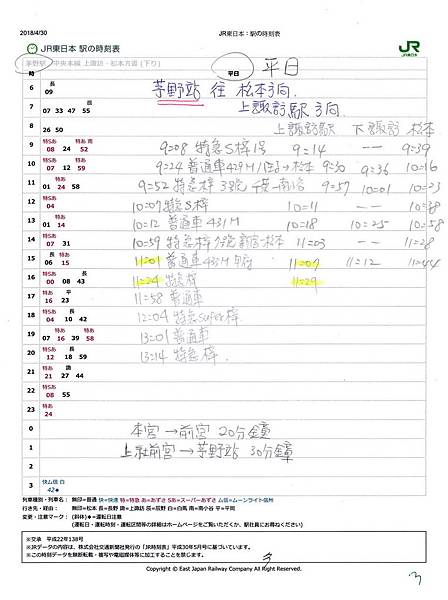 2018/4/30 JR東日本：駅の時刻表
JR東日本 駅の時刻表
JR
JR東日本
茅野駅 中央本線 上諏訪・松本方面 (下り)
時 平日 平日
6 長 09 茅野站 往 松本方向
7 辰 07 33 47 55 上諏訪駅 方向
8 26 50 上諏訪駅 下諏訪 松本
9 特Sあ 特あ 南 08 24 52 9=08 特急S梓1号 9=14 -- 9=39
10 特Sあ 特あ 07 12 59 9=24 普通車429M 9=30 9=36 10=16
11 特あ 01 24 58 9=52 特急梓3號 千葉-南小谷 9=57 10=01 10=23
12 特Sあ 04 10=07 特急S梓 10=11 --
13 特Sあ 01 14 10=12 普通車431M 10=18 10=25 10=58
14 特Sあ 07 31 10=59 特急梓 7號 新宿-松本 11=03 -- 11=28
15 特あ 06 15 11=01 普通車433M 11=07 11=12 11=44
16 特Sあ 長 00 08 43 11=24 特急梓 11=29
17 特あ 平 16 23 11=58 普通車
18 特Sあ 長 04 10 42 12=04 特急super梓
19 特あ 特あ 07 16 39 58 13=01 普通車
20 特Sあ 長 12 18 59 13=14 特急梓
21 特あ 諏 27 44
22 特Sあ 08 55
23 特あ 24
0 本宮→前宮 20分鐘
1 上社前宮→茅野站 30分鐘
2
3 快ム信 白 42◆
列車種別・列車名： 無印=普通 快=快速 特=特急 あ=あずさ Sあ=スーパーあずさ ム信=ムーンライト信州
行き先・経由： 無印=松本 長=長野 諏=上諏訪 辰=辰野 白=白馬 南=南小谷 平=平岡
変更・注意マーク： (斜体)◆=運転日注意
(運転日・運転時刻・運転区間等の詳細はホームページをごらんいただくか、駅社員にお尋ねください)
※交承 平成22年138号
※JRデータの内容は、株式会社交通新聞社発行の「JR時刻表」平成30年5月号に基づいています。
※この時刻データを無断転載・複写や電磁媒体等に加工することを禁じます。
Copyright © East Japan Railway Company All Rights Reserved.
3